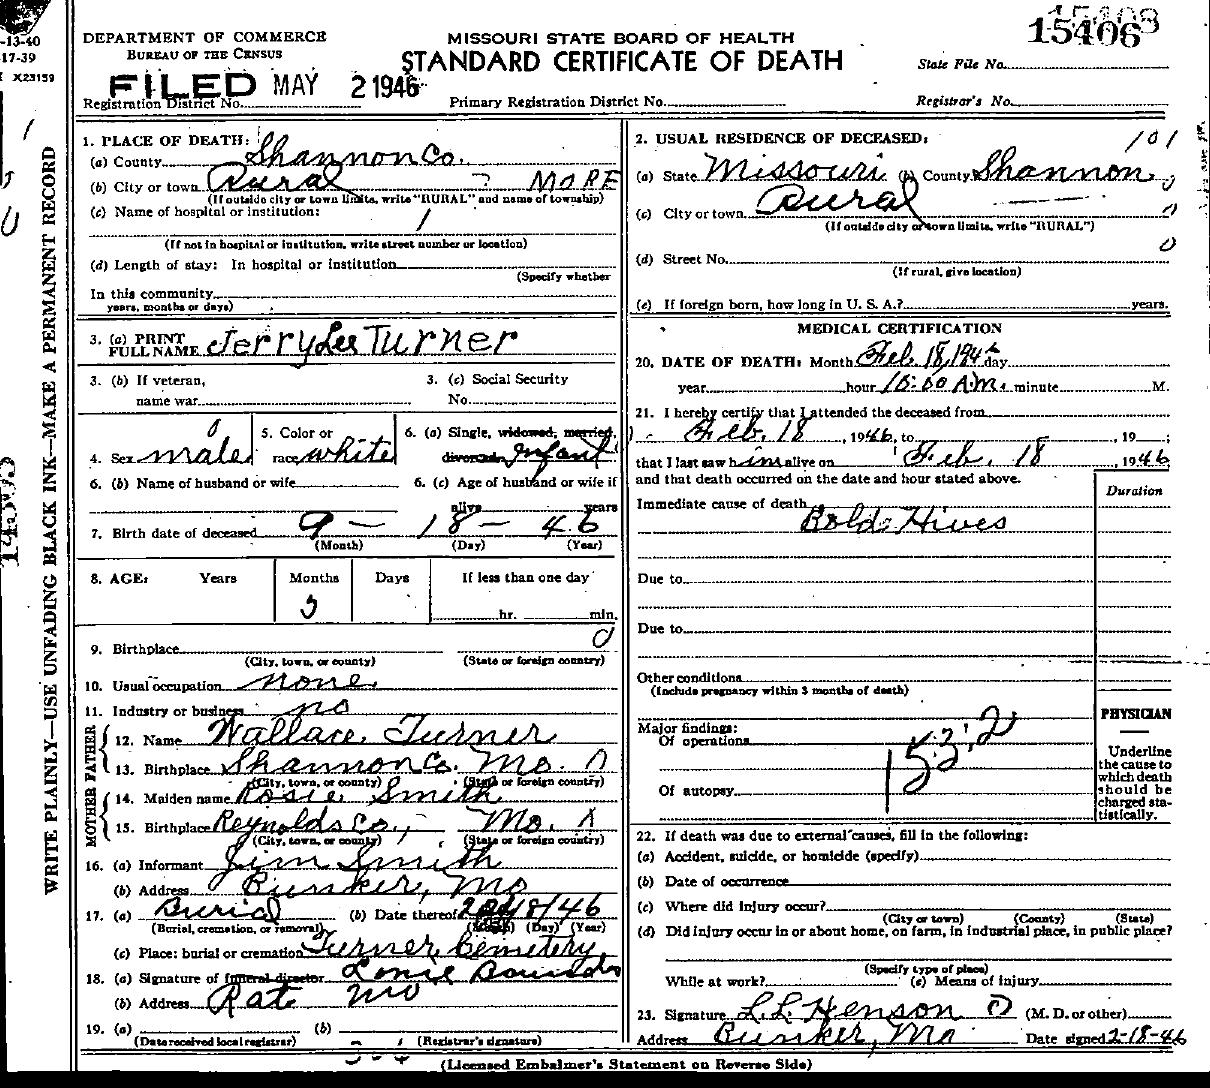 15408
15406
-13-40
17-39
X23159
DEPARTMENT OF COMMERCE
BUREAU OF THE CENSUS
MISSOURI STATE BOARD OF HEALTH
STANDARD CERTIFICATE OF DEATH
State File No.
FILED MAY 2 1946
Registration District No.
Primary Registration District No.
Registrar's No.
WRITE PLAINLY—USE UNFADING BLACK INK—MAKE A PERMANENT RECORD
1. PLACE OF DEATH:
(a) County Shannon Co.
(b) City or town Rural ? MORE
(If outside city or town limits, write "RURAL" and name of township)
(c) Name of hospital or institution:
(If not in hospital or institution, write street number or location)
(d) Length of stay: In hospital or institution
(Specify whether
In this community
years, months or days)
3. (a) PRINT FULL NAME Jerry Lee Turner
3. (b) If veteran, name war
3. (c) Social Security No.
4. Sex male
5. Color or race white
6. (a) Single, widowed, married, divorced Infant
6. (b) Name of husband or wife
6. (c) Age of husband or wife if alive years
7. Birth date of deceased 9 - 18 - 46
(Month) (Day) (Year)
8. AGE: Years Months Days If less than one day
5 hr. min.
9. Birthplace
(City, town, or county) (State or foreign country)
10. Usual occupation none
11. Industry or business no
FATHER
12. Name Wallace Turner
13. Birthplace Shannon Co. Mo.
(City, town, or county) (State or foreign country)
MOTHER
14. Maiden name Rosie Smith
15. Birthplace Reynolds Co., Mo.
(City, town, or county) (State or foreign country)
16. (a) Informant Jim Smith
(b) Address Bunker, Mo
17. (a) Burial (b) Date thereof 18/46
(Burial, cremation, or removal) (Month) (Day) (Year)
(c) Place: burial or cremation Turner Cemetery
18. (a) Signature of funeral director
(b) Address Rat Mo
19. (a) (b)
(Date received local registrar) (Registrar's signature)
2. USUAL RESIDENCE OF DECEASED: 101
(a) State Missouri (b) County Shannon
(c) City or town Rural
(If outside city or town limits, write "RURAL")
(d) Street No.
(If rural, give location)
(e) If foreign born, how long in U. S. A.? years.
MEDICAL CERTIFICATION
20. DATE OF DEATH: Month Feb. 18, 1946 day
year hour 10:00 A.M. minute M.
21. I hereby certify that I attended the deceased from
Feb. 18, 1946, to , 19 ;
that I last saw him alive on Feb. 18 1946
and that death occurred on the date and hour stated above.
Duration
Immediate cause of death Bold Hives
Due to
Due to
Other conditions
(Include pregnancy within 3 months of death)
Major findings:
Of operations
153.2
Of autopsy
PHYSICIAN
Underline the cause to which death should be charged statistically.
22. If death was due to external causes, fill in the following:
(a) Accident, suicide, or homicide (specify)
(b) Date of occurrence
(c) Where did injury occur?
(City or town) (County) (State)
(d) Did injury occur in or about home, on farm, in industrial place, in public place?
(Specify type of place)
While at work? (e) Means of injury
23. Signature L.L. Henson (M. D. or other)
Address Bunker, Mo Date signed 2-18-46
(Licensed Embalmer's Statement on Reverse Side)